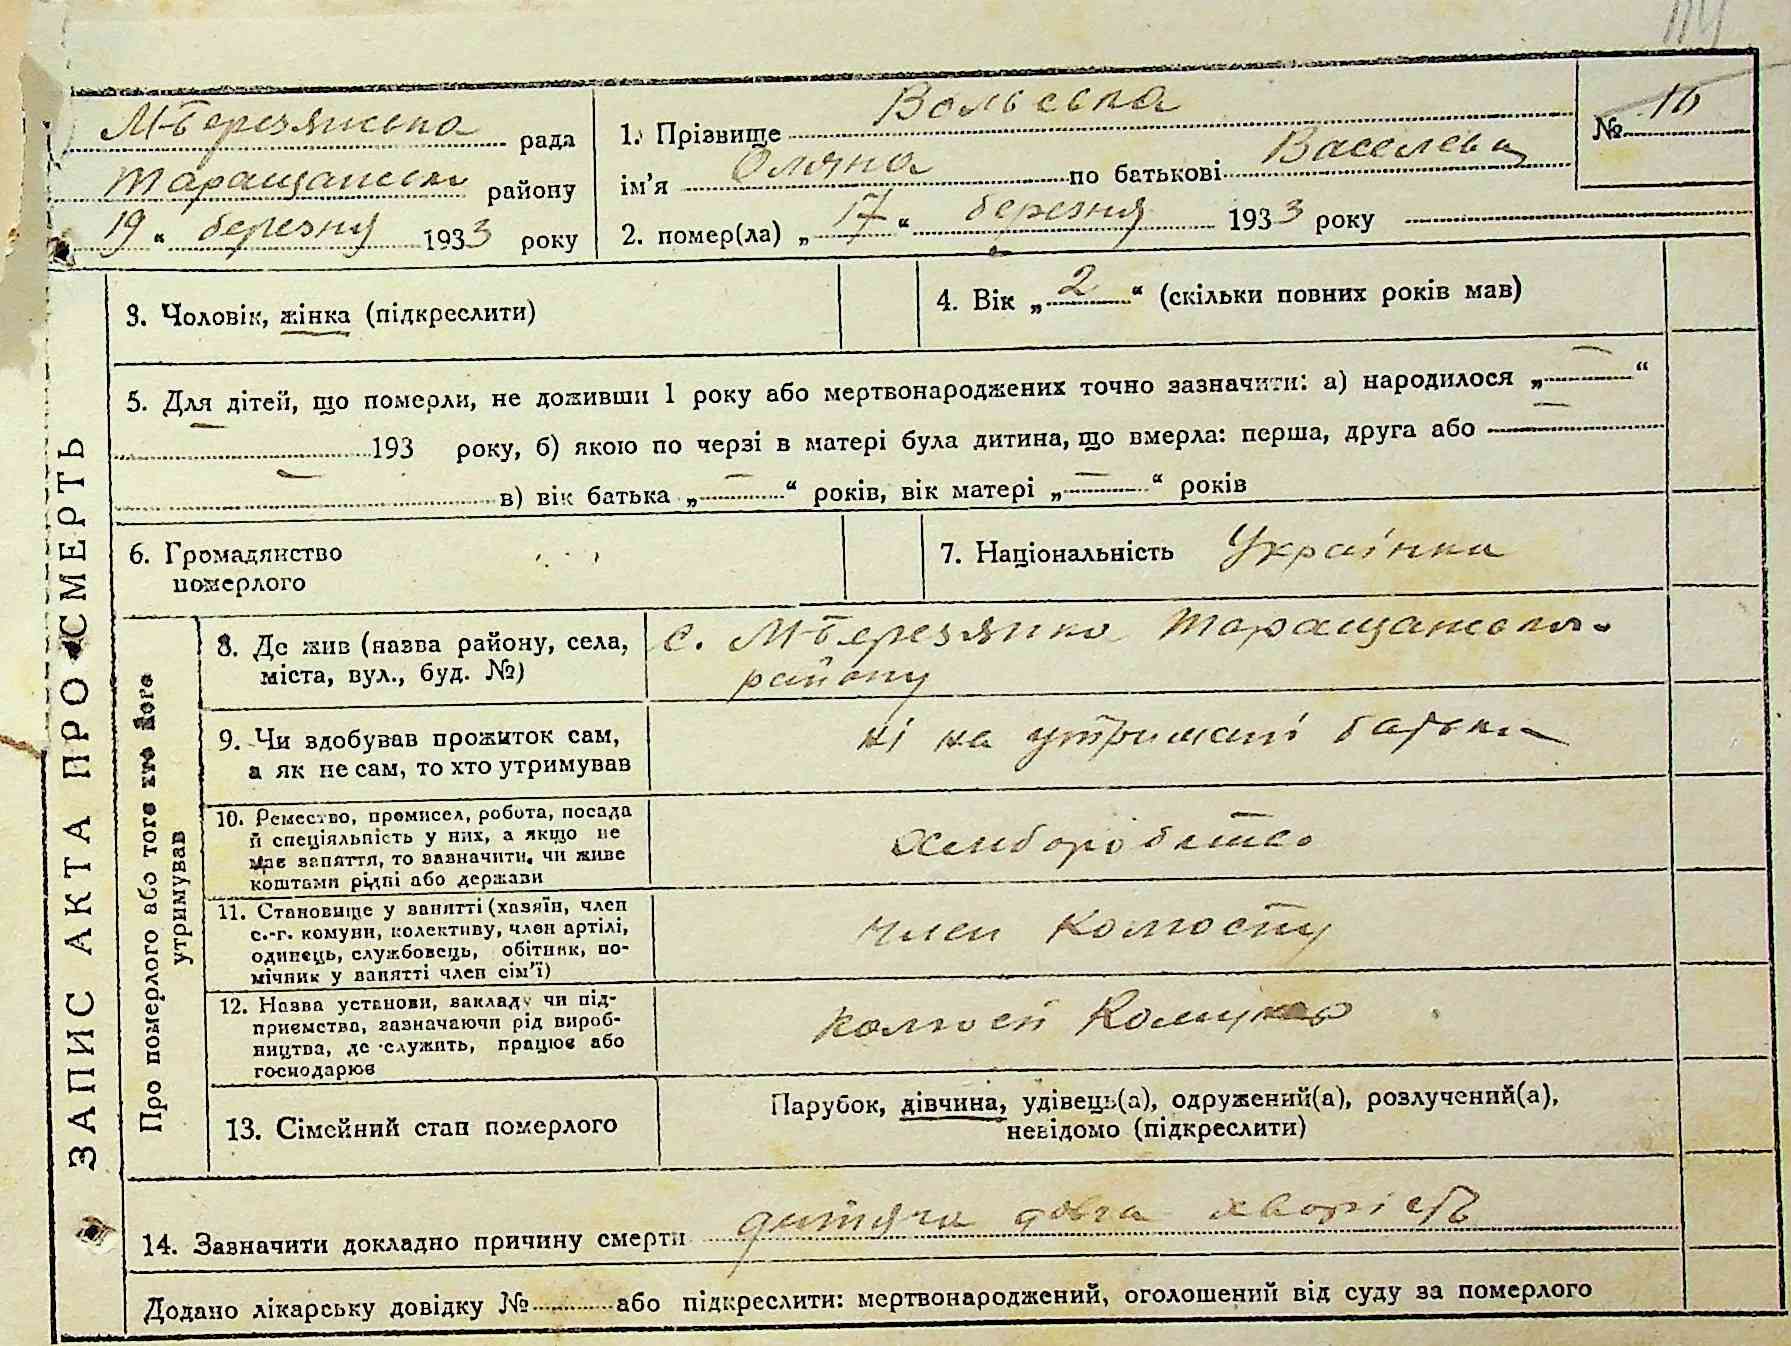 ЗАПИС АКТА ПРО СМЕРТЬ
М-Березянська рада
Таращанськ району
19 " березня 1933 року
1. Прізвище Вольська
ім'я Оляна по батькові Васелева
2. помер(ла) „ 17 " березня 1933 року
№ 16
3. Чоловік, жінка (підкреслити)
4. Вік „ 2 “ (скільки повних років мав)
5. Для дітей, що померли, не доживши 1 року або мертвонароджених точно зазначити: а) народилося „ — “
— 193 року, б) якою по черзі в матері була дитина, що вмерла: перша, друга або —
— в) вік батька „ — “ років, вік матері „ — “ років
6. Громадянство
померлого
7. Національність Українка
Про померлого або того хто його
утримував
8. Де жив (назва району, села,
міста, вул., буд. №)
с. М-Березянка Таращанського
району
9. Чи здобував прожиток сам,
а як не сам, то хто утримував
ні на утримані батька
10. Ремество, промисел, робота, посада
й спеціяльність у них, а якщо не
має заняття, то зазначити, чи живе
коштами рідні або держави
хліборобство
11. Становище у занятті (хазяїн, член
с.-г. комуни, колективу, член артілі,
одинець, службовець, обітник, по-
мічник у занятті член сім'ї)
член колгоспу
12. Назва установи, закладу чи під-
приємства, зазначаючи рід вироб-
ництва, де служить, працює або
господарює
колгосп
13. Сімейний стан померлого
Парубок, дівчина, удівець(а), одружений(а), розлучений(а),
невідомо (підкреслити)
14. Зазначити докладно причину смерти дитяча довга хворість
Додано лікарську довідку № або підкреслити: мертвонароджений, оголошений від суду за померлого